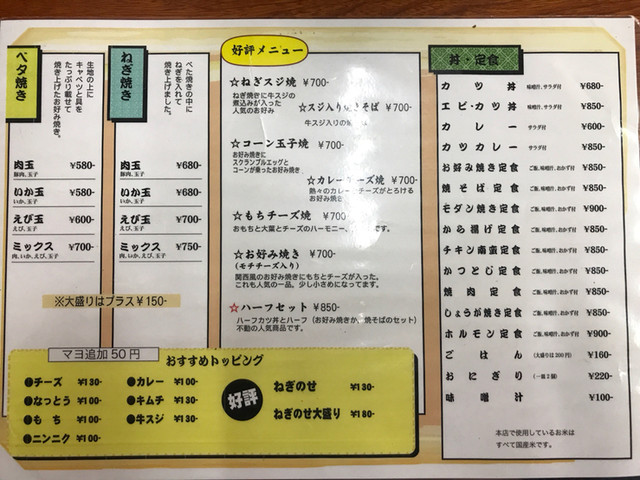 ベタ焼き
生地の上に
キャベツと具を
たっぷり載せて
焼き上げたお好み焼き。
肉玉 ¥580-
豚肉、玉子
いか玉 ¥580-
いか、玉子
えび玉 ¥600-
えび、玉子
ミックス ¥700-
肉、いか、えび、玉子
ねぎ焼き
べた焼きの中に
ねぎを入れて
焼き上げました。
肉玉 ¥680-
豚肉、玉子
いか玉 ¥680-
いか、玉子
えび玉 ¥700-
えび、玉子
ミックス ¥750-
肉、いか、えび、玉子
※大盛りはプラス¥150-
好評メニュー
☆ねぎスジ焼 ¥700-
ねぎ焼きに牛スジの
煮込みが入った
人気のお好み
☆スジ入り焼きそば ¥700-
牛スジ入りの
☆コーン玉子焼 ¥700-
お好み焼きに
スクランブルエッグと
コーンが乗ったお好み焼き
☆カレーチーズ焼 ¥700-
熱々のカレーとチーズがとろける
お好み焼き
☆もちチーズ焼 ¥700-
おもちと大葉とチーズのハーモニー、です。
☆お好み焼き ¥700-
(モチチーズ入り)
関西風のお好み焼きにもちとチーズが入った。
これも人気の一品。少し小さめになってます。
☆ハーフセット ¥850-
ハーフカツ丼とハーフ(お好み焼きか、焼そばのセット)
不動の人気商品です。
丼・定食
カツ丼 味噌汁、サラダ付 ¥680-
エビ・カツ丼 味噌汁、サラダ付 ¥850-
カレー サラダ付 ¥600-
カツカレー サラダ付 ¥850-
お好み焼き定食 ご飯、味噌汁、おかず付 ¥850-
焼そば定食 ご飯、味噌汁、おかず付 ¥850-
モダン焼き定食 ご飯、味噌汁、おかず付 ¥900-
から揚げ定食 ご飯、味噌汁、おかず付 ¥850-
チキン南蛮定食 ご飯、味噌汁、おかず付 ¥850-
かつとじ定食 ご飯、味噌汁、おかず付 ¥850-
焼肉定食 ご飯、味噌汁、おかず付 ¥850-
しょうが焼き定食 ご飯、味噌汁、おかず付 ¥850-
ホルモン定食 ご飯、味噌汁、おかず付 ¥900-
ごはん (大盛りは200円) ¥160-
おにぎり (一皿2個) ¥220-
味噌汁 ¥100-
本店で使用しているお米は
すべて国産米です。
マヨ追加50円
おすすめトッピング
❶チーズ ¥130-
●なっとう ¥100-
●もち ¥100-
●ニンニク ¥100-
●カレー ¥100-
●キムチ ¥130-
●牛スジ ¥130-
好評
ねぎのせ ¥130-
ねぎのせ大盛り ¥180-